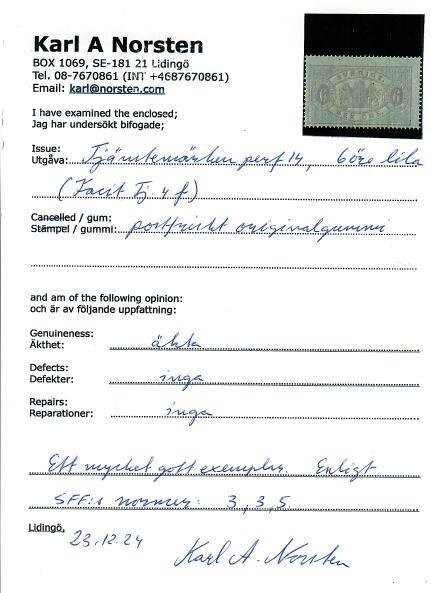 Karl A Norsten
BOX 1069, SE-181 21 Lidingö
Tel. 08-7670861 (INT +4687670861)
Email: karl@norsten.com
SVERIGE
6 6
I have examined the enclosed;
Jag har undersökt bifogade;
Issue:
Utgåva: Tjänstemärken perf 14, 6 öre lila
(Facit Tj 4 f)
Cancelled / gum:
Stämpel / gummi: postfriskt originalgummi
and am of the following opinion:
och är av följande uppfattning:
Genuineness:
Äkthet: äkta
Defects:
Defekter: inga
Repairs:
Reparationer: inga
Ett mycket gott exemplar. Enligt
SFF:s normer: 3, 3, 5
Lidingö, 23.12.24
Karl A. Norsten